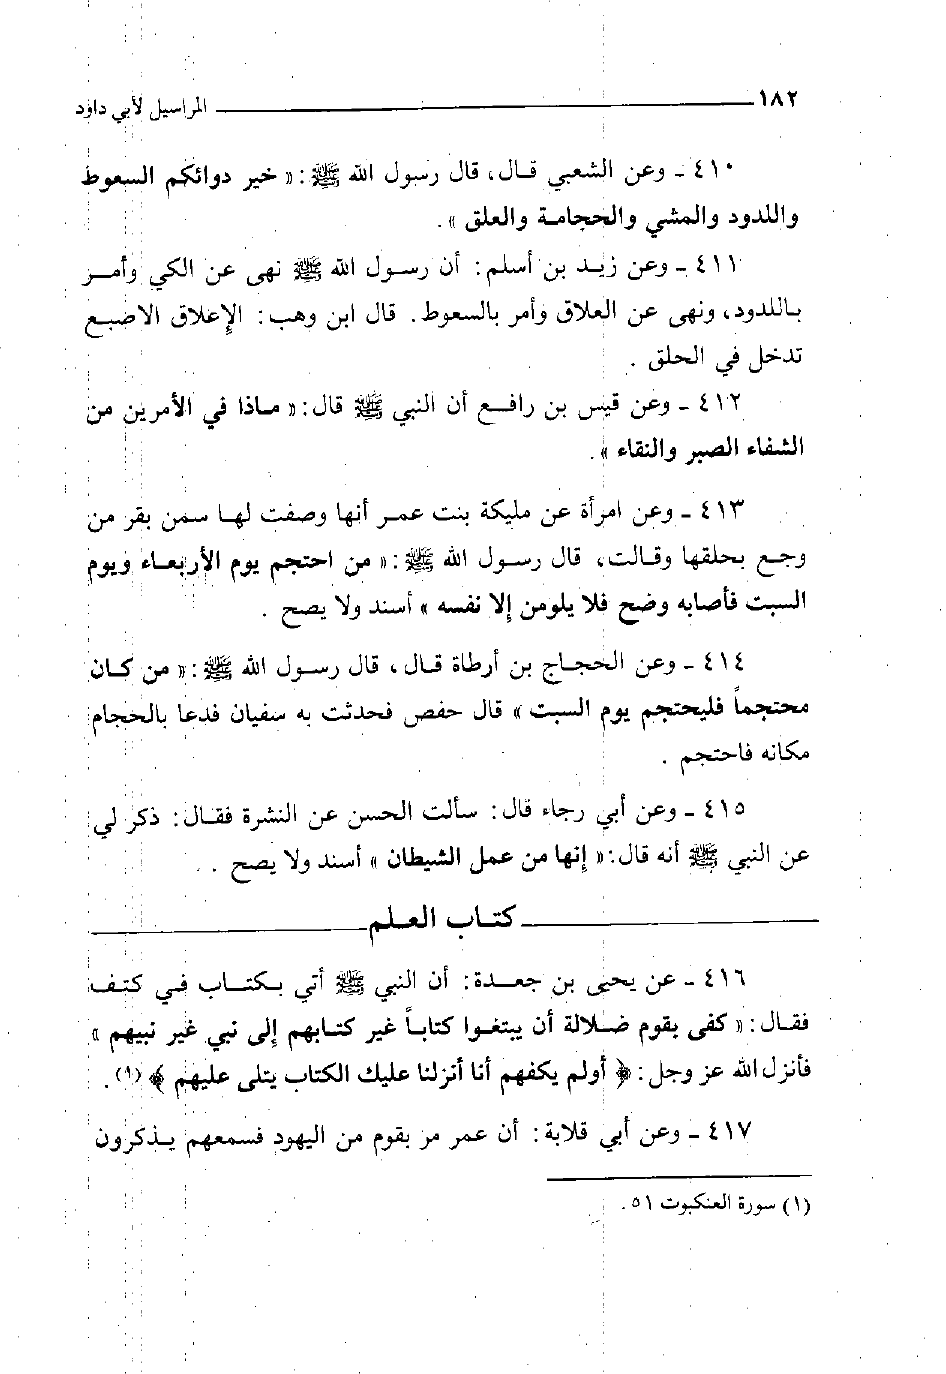 ١٨٢ المراسيل لأبي داؤد
٤١٠ - وعن الشعبي قال، قال رسول الله ﷺ: « خير دوائكم السعوط
واللدود والمشي والحجامة والعلق ».
٤١١ - وعن زيد بن أسلم: أن رسول الله ﷺ نهى عن الكي وأمر
باللدود، ونهى عن العلاق وأمر بالسعوط. قال ابن وهب: الإعلاق الاصبع
تدخل في الحلق .
٤١٢ - وعن قيس بن رافع أن النبي ﷺ قال: « ماذا في الأمرين من
الشفاء الصبر والنقاء ».
٤١٣ - وعن امرأة عن مليكة بنت عمر أنها وصفت لها سمن بقر من
وجع بحلقها وقالت، قال رسول الله ﷺ: « من احتجم يوم الأربعاء ويوم
السبت فأصابه وضح فلا يلومن إلا نفسه » أسند ولا يصح .
٤١٤ - وعن الحجاج بن أرطاة قال، قال رسول الله ﷺ: « من كان
محتجماً فليحتجم يوم السبت » قال حفص فحدثت به سفيان فدعا بالحجام
مكانه فاحتجم .
٤١٥ - وعن أبي رجاء قال: سألت الحسن عن النشرة فقال: ذكر لي
عن النبي ﷺ أنه قال: « إنها من عمل الشيطان » أسند ولا يصح .
كتاب العلم
٤١٦ - عن يحيى بن جعدة: أن النبي ﷺ أتي بكتاب في كتف
فقال: « كفى بقوم ضلالة أن يبتغوا كتاباً غير كتابهم إلى نبي غير نبيهم »
فأنزل الله عز وجل: ﴿ أولم يكفهم أنا أنزلنا عليك الكتاب يتلى عليهم ﴾ (١).
٤١٧ - وعن أبي قلابة: أن عمر مر بقوم من اليهود فسمعهم يذكرون
(١) سورة العنكبوت ٥١.